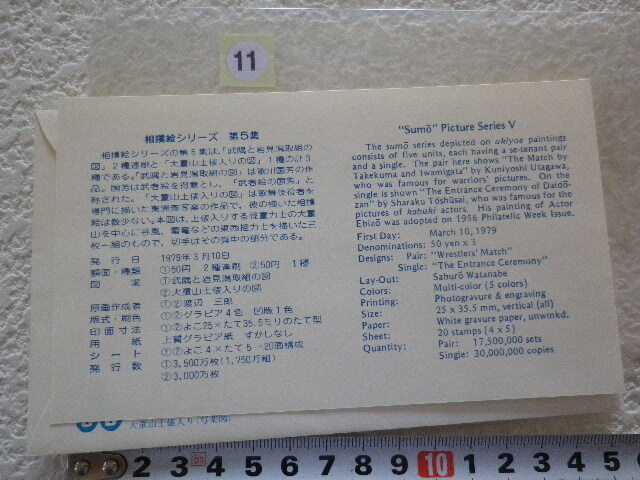 11
相撲絵シリーズ 第5集
相撲絵シリーズの第5集は、「武隈と岩見潟取組の
図」2種連刷と「大童山土俵入りの図」1種の計3
種である。「武隈と岩見潟取組の図」は歌川国芳の作
品。国芳は武者絵を得意とし、「武者絵の国芳」と
称された。「大童山土俵入りの図」は歌舞伎役者を
専門に描いた東洲斎写楽の作品で、彼の描いた相撲
絵は数少ない。本図は、土俵入りする怪童力士の大童
山を中心に谷風、雷電などの東西陸力士を描いた三
枚一組のもので、切手はその真中の部分である。
発行日 1979年3月10日
額面・種類 ①50円 2種連刷 ②50円 1種
図案 ①武隈と岩見潟取組の図
②大童山土俵入りの図
原画作成者 ①②渡辺 三郎
版式・刷色 ①②グラビア4色 凹版1色
印面寸法 ①②よこ25×たて35.5ミリのたて型
用紙 上質グラビア紙 すかしなし
シート ①②よこ4×たて5=20面構成
発行数 ①3,500万枚(1,750万組)
②3,000万枚
"Sumō" Picture Series V
The sumō series depicted on ukiyoe paintings
consists of five units, each having a se-tenant pair
and a single. The pair here shows "The Match by
Takekuma and Iwamigata" by Kuniyoshi Utagawa,
who was famous for warriors' pictures. On the
single is shown "The Entrance Ceremony of Daidō-
zan" by Sharaku Tōshūsai, who was famous for the
pictures of kabuki actors. His painting of Actor
Ebizō was adopted on 1956 Philatelic Week Issue.
First Day: March 10, 1979
Denominations: 50 yen x 3
Designs: Pair: "Wrestlers' Match"
Single: "The Entrance Ceremony"
Lay-Out: Saburō Watanabe
Colors: Multi-color (5 colors)
Printing: Photogravure & engraving
Size: 25 x 35.5 mm, vertical (all)
Paper: White gravure paper, unwmkd.
Sheet: 20 stamps (4 x 5)
Quantity: Pair: 17,500,000 sets
Single: 30,000,000 copies
大童山土俵入り(写楽図)
2 3 4 5 6 7 8 9 10 1 2 3 4 5